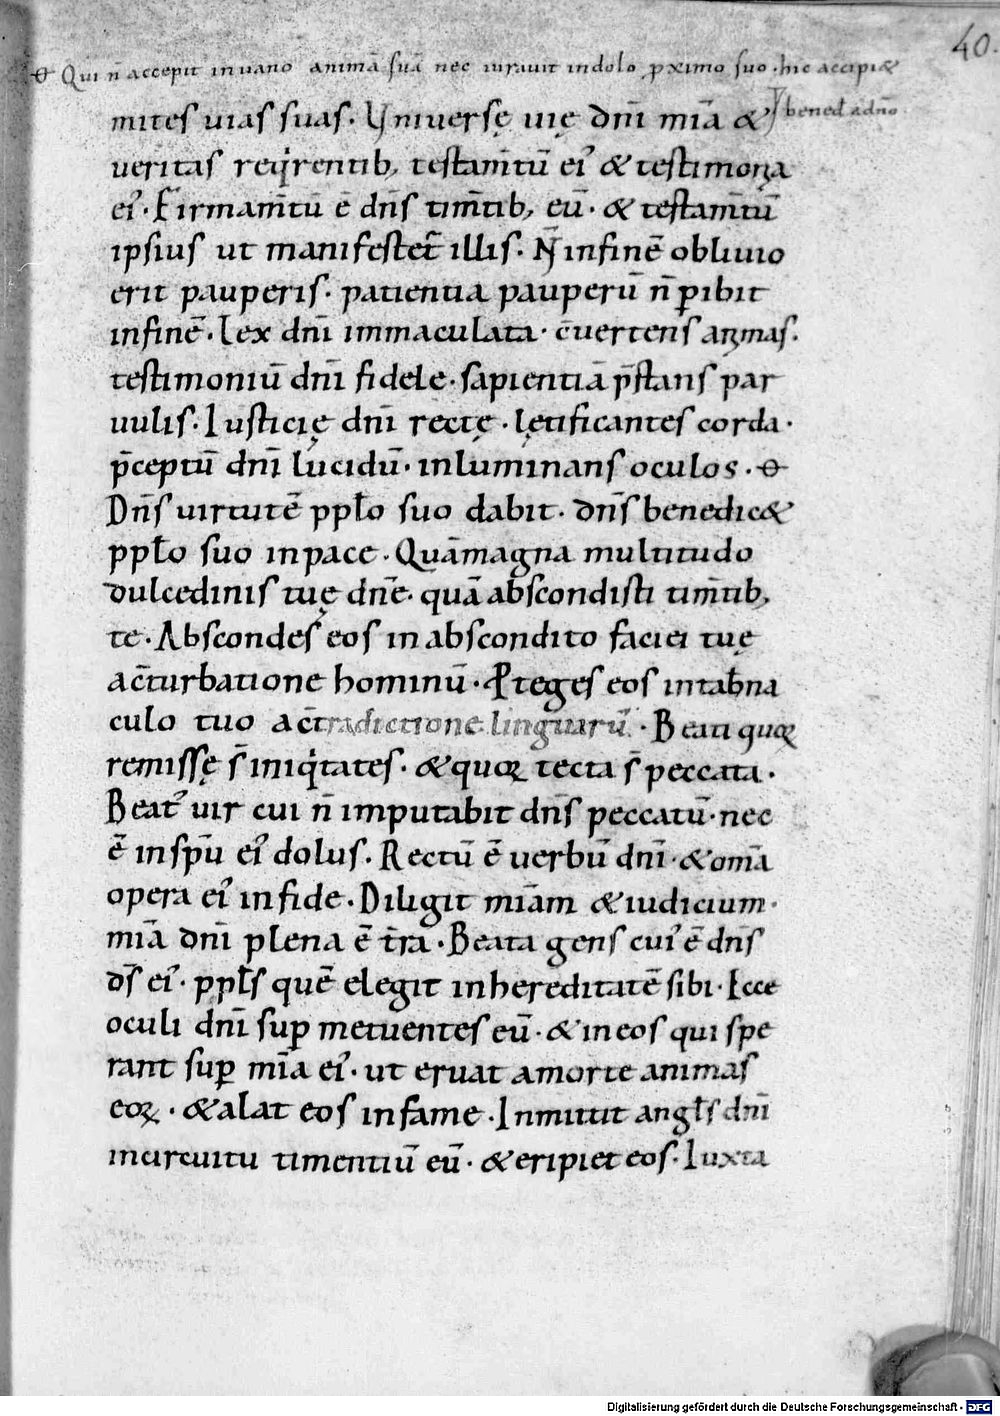 40.
ɵ Qui n̄ accepit in uano animā suā nec iurauit in dolo ꝓximo suo · hic accipi&
bened̄ a dn̄o
mites uias suas · Uniuersę uię dn̄i mīa &
ueritas reqͥrentib; testam̄tū eiꝰ & testimonia
eiꝰ · Firmam̄tū ē dn̄s tim̄tib; eū · & testam̄tū
ipsius ut manifestet᷑ illis · N̄ in finē obliuio
erit pauperis · patientia pauperū n̄ ꝑibit
in finē · Lex dn̄i immaculata · c̄uertens animas ·
testimoniū dn̄i fidele · sapientiā p̄stans par
uulis · Iusticię dn̄i rectę · lętificantes corda ·
p̄ceptū dn̄i lucidū · inluminans oculos · ɵ
Dn̄s uirtutē ppl̄o suo dabit · dn̄s benedic&
ppl̄o suo in pace · Quā magna multitudo
dulcedinis tuę dn̄e · quā abscondisti tim̄tib;
te · Abscondes eos in abscondito faciei tuę
a c̄turbatione hominū · Ꝓteges eos in tab̄na
culo tuo a c̄tradictione linguarū · Beati quoꝝ
remissę s̄ iniqͥtates · & quoꝝ tecta s̄ peccata ·
Beatꝰ uir cui n̄ imputabit dn̄s peccatū · nec
ē in sp̄u eiꝰ dolus · Rectū ē uerbū dn̄i · & om̄a
opera eiꝰ in fide · Diligit mīam & iudicium ·
mīa dn̄i plena ē t̄ra · Beata gens cuiꝰ ē dn̄s
ds̄ eiꝰ · ppl̄s quē elegit in hereditatē sibi · Ecce
oculi dn̄i suꝑ metuentes eū · & in eos qui spe
rant suꝑ mīa eiꝰ · ut eruat a morte animas
eoꝝ · & alat eos in fame · Inmittit angl̄s dn̄i
in circuitu timentiū eū · & eripiet eos · Iuxta
Digitalisierung gefördert durch die Deutsche Forschungsgemeinschaft - DFG